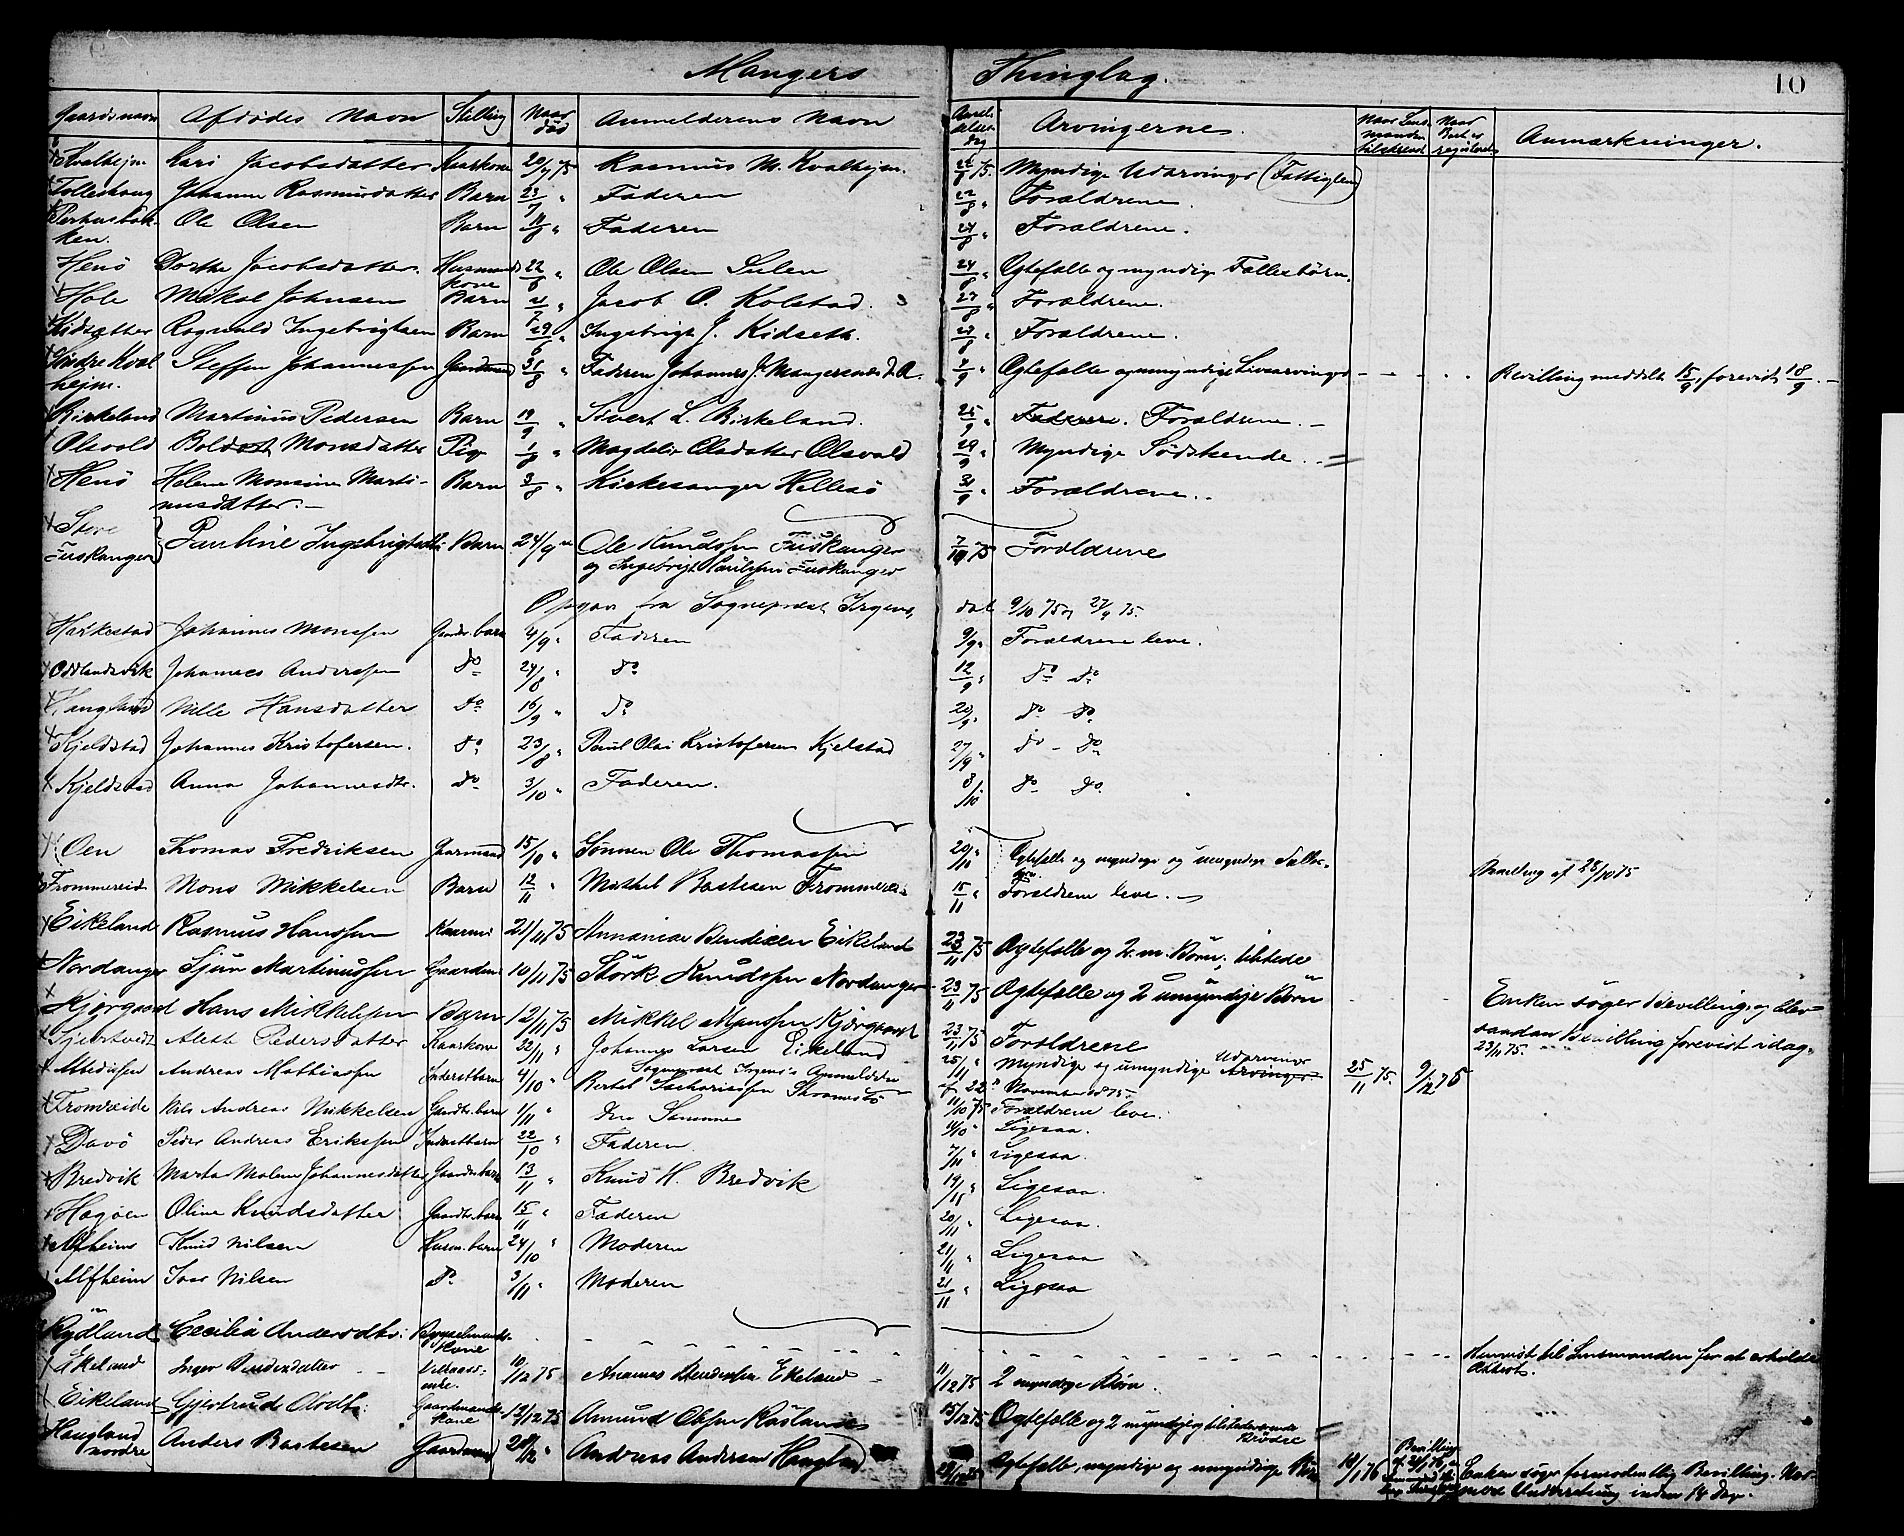 Mangers Thinglag. 10
Gaardsnavn Afdødes Navn Stilling Naar død Anmelderens Navn Anmeldelses Dag Arvingerne. Naar Lensmanden tilskrevet Naar Boet er registreret Anmærkninger.
Kvalhejm Kari Jacobsdatter Kaarkone 20/7 75 Rasmus M. Kvalhejm. 22/8 75. Myndige Udarvinger (Fattiglem)
Tolleshaug Johanne Rasmusdatter Barn 23/7 " Faderen 22/8 " Forældrene.
Perhusbakken. Ole Olsen Barn 11/8 " Faderen 24/8 " Forældrene.
Henö Dorthe Jacobsdatter. Husmands kone 22/8 " Ole Olsen Sulen 24/8 " Ægtefælle og myndige Fællesbörn.
Hole Mikal Johnsen Barn 21/7 " Jacob O. Kolstad. 27/8 " Forældrene.
Kidsætter Ragnvald Ingebrigtsen Barn 29/6 " Ingebrigt J. Kidseth. 29/8 " Forældrene.
Nindre Kvalhejm. Steffen Johannessen Gaardmand 31/8 " Faderen Johannes J. Mangersnes d. A. 4/9 " Ægtefælle og umyndige Livsarvinger - - - - Bevilling meddelt 15/9, forevist 18/9. -
Birkeland Martinus Pedersen Barn 19/9 " Sivert L. Birkeland. 25/9 " Faderen. Forældrene. -
Olsvold Boldost Monsdatter Pige 1/8 " Magdeli Olsdatter Olsvold 29/9 " Myndige Sødskende.
Henö Helene Monsine Martinusdatter. - Barn 3/8 " Kirkesanger Hellesö 31/9 " Forældrene.
Store Fuskanger Pauline Ingebrigtsdtr Barn 24/9 " Ole Knudssen Fuskanger 7/10 75 Forældrene
og Ingebrigt Paulsen Fuskanger
Opgave fra Sogneprest Irgens, dat 9/10 75 og 27/9 75.
Harkestad Johannes Monssen Gaardm. barn 4/9 " Faderen 9/9 " Forældrene leve.
Oddlandsvik Johannes Anderssen do 24/8 " do 12/9 " do do
Hangland Nille Hansdatter do 16/9 " do 20/9 " do do
Kjeldstad Johannes Kristofersen. do 23/8 " Paul Olai Kristofersen Kjelstad 27/9 " do - do
Kjeldstad Anna Johannesdtr. do 3/10 " Faderen. 8/10 do do
Oen Thomas Fredriksen Gaarmand 15/10 " Sønnen Ole Thomassen 20/11 " Ægtefælle og myndige og umyndige Fællesbørn Bevilling af 28/10 75
Frommereid Mons Mikkelsen Barn 12/11 Mikkel Bastesen Frommereid 15/11 " Forældrene leve. -
Eikeland Rasmus Hanssen Kaarmd 21/11 75 Annanias Bendixen Eikeland 23/11 75 Ægtefælle og 2 m. Børn, tilstede
Nordanger Sjur Martinussen Gaardm 10/11 75 Störk Knudssen Nordanger 23/11 75 Ægtefælle og 2 umyndige Børn Enken søger Bevilling, og blev
Kjørgaard Hans Mikkelsen Barn 12/11 75 Mikkel Monssen Kjørgaard 23/11 75 Forældrene saadan Bevilling forevist idag. 23/11 75.
Alethe Pedersdatter Kaarkone 22/11 " Johannes Larsen Eikeland 25/11 " Myndige og umyndige Udarvinger Arvinger. 25/11 75. 9/12 75
Sogneprest Irgens's Anmeldelse f. 22 November 1875.
Andreas Mathissen Inderstbarn 4/10 " Bertel Sachariassen 11/10 75 Forældrene leve.
Fromreide Nils Andreas Mikkelsen Gaardm. barn 1/11 " Den Samme 4/10 " Ligesaa.
Davö Peder Andreas Erikssen Inderstbarn 22/10 " Faderen 7/11 " Ligesaa.
Bredvik Marta Malene Johannesdatter Gaardm. barn 13/11 " Knud H. Bredvik 19/11 " Ligesaa.
Hagöen Oline Knudsdatter Gaardm. barn 15/11 " Faderen 20/11 " Ligesaa.
Alfheim Knud Nilsen Husm. barn 24/10 " Moderen 21/11 " Ligesaa
Alfheim Ivar Nilsen do 3/11 " Moderen 21/11 " Ligesaa
Rydland Cecilia Andersdtr: Bygselmands-kone Henvist til Lensmanden for at erholde Attest.
Eikeland Inger Bendixdatter - - 10/12 75 Ananias Bendixsen Ekeland 11/12 75 2 myndige Børn.
Eikeland Gjertrud Olsdtr: Gaardmands-kone 12/12 75 Amund Olssen Røsland 15/12 75 Ægtefælle og 2 myndige og tilstedeværende Brødre
Hangland nordre Anders Bastesen Gaardmand 28/12 " Andreas Andersen Hangland 29/12 75 Ægtefælle, myndige og umyndige Børn 14/1 76 Bevilling Enken søger formodentlig Bevilling. Nærmere Underretning inden 14 Dage.